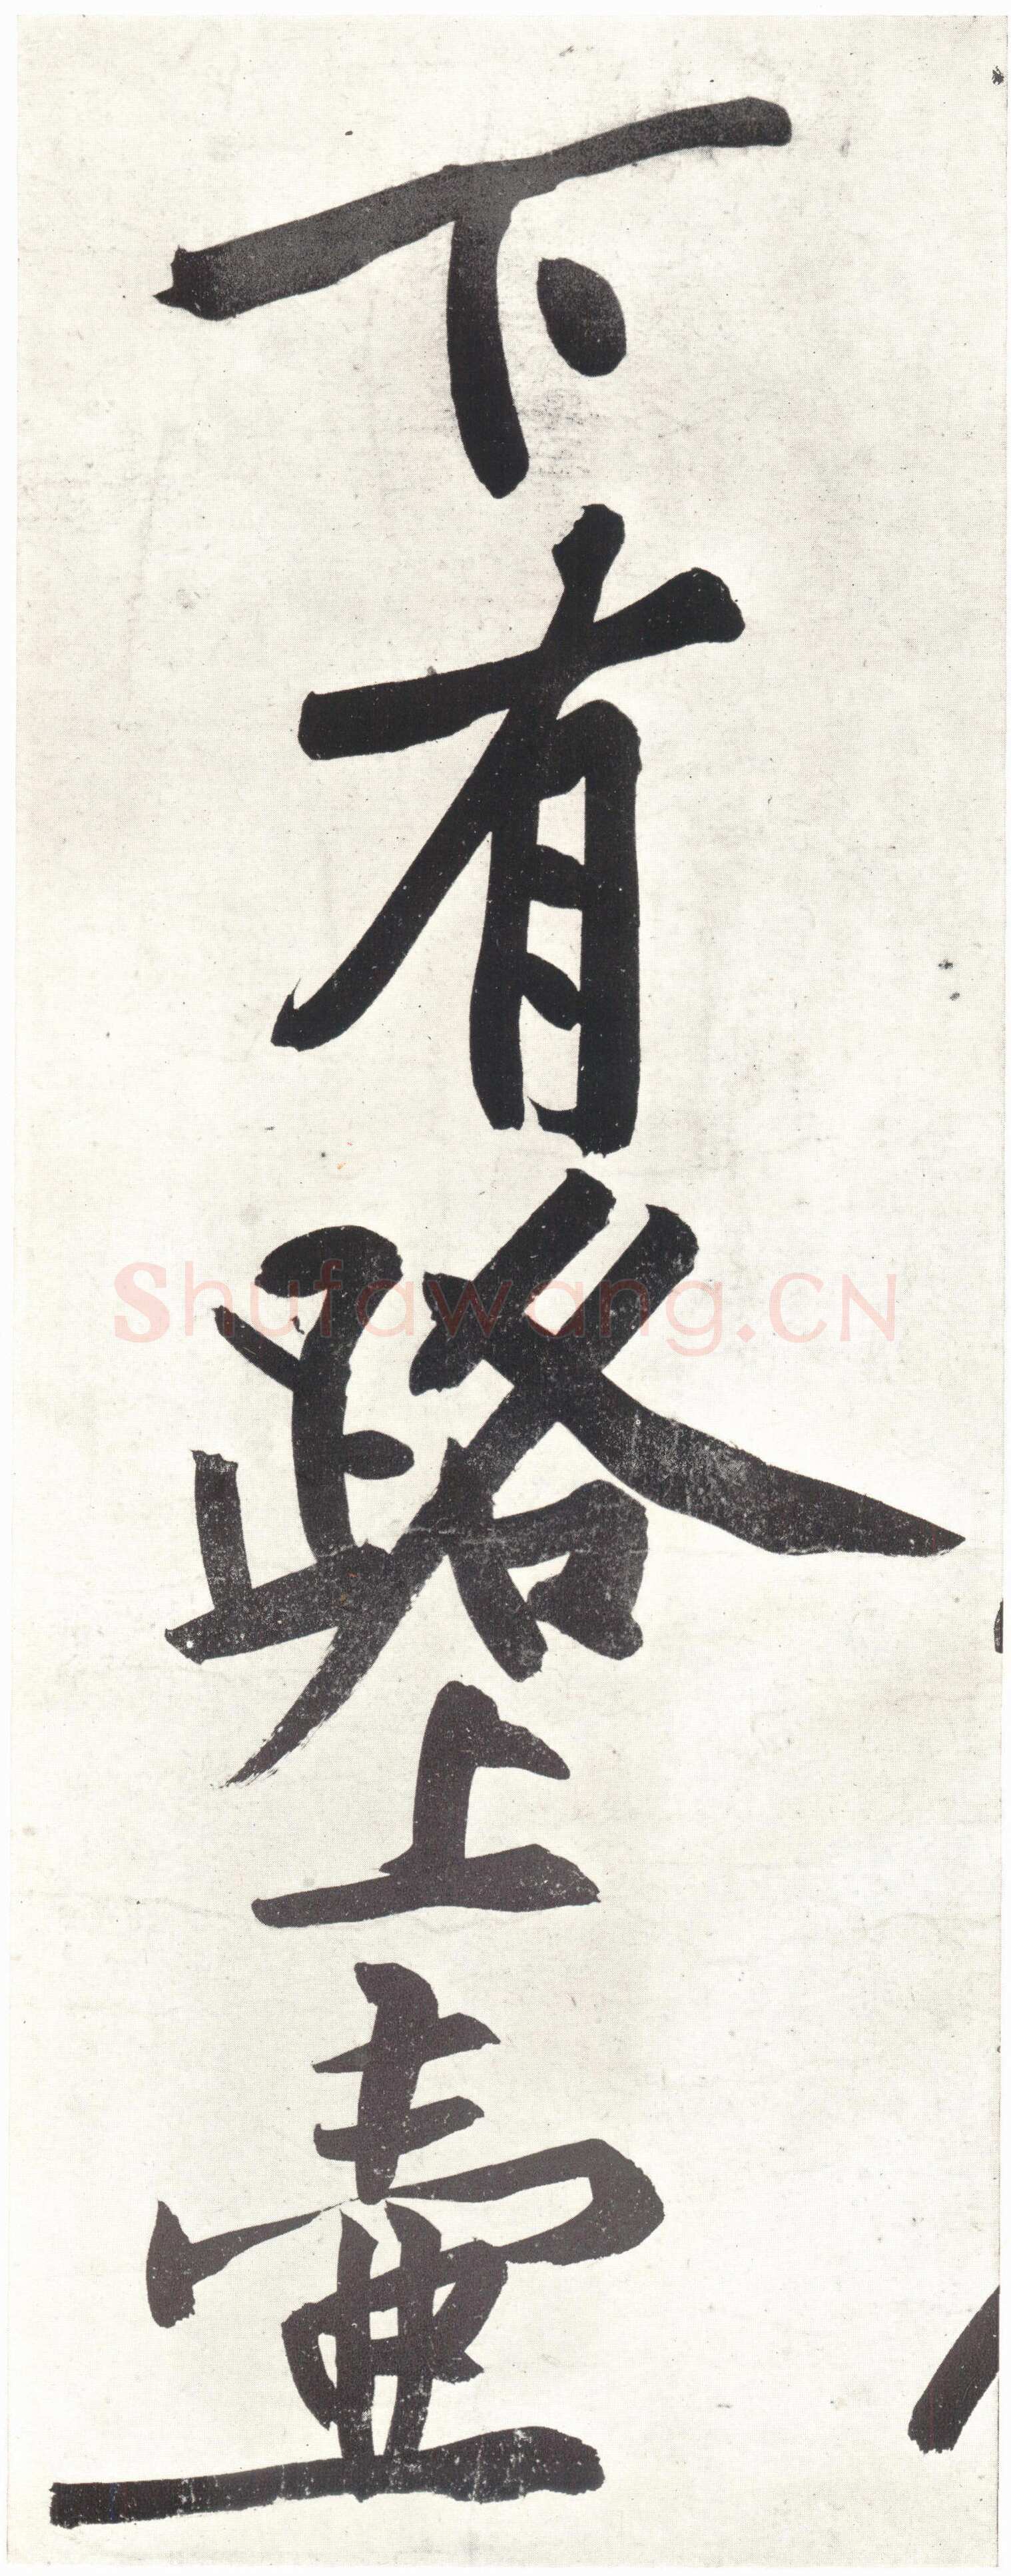 下有路上壺
Shufawang.CN